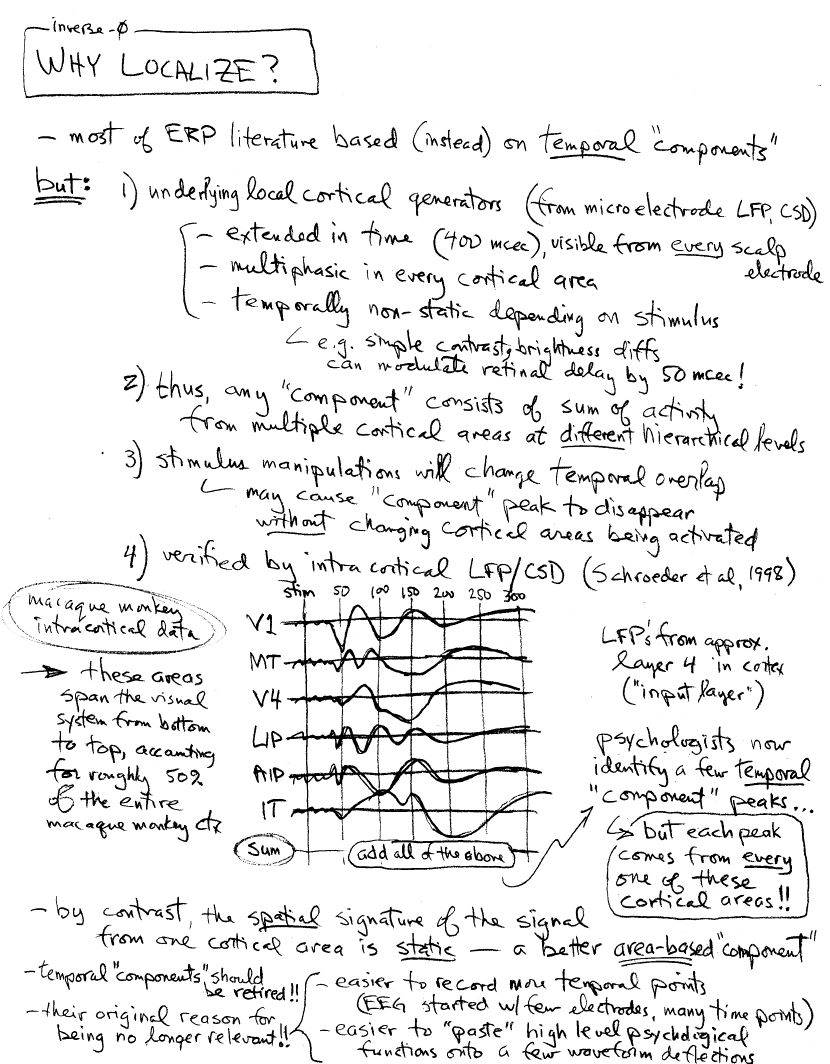 inverse-φ
WHY LOCALIZE?
– most of ERP literature based (instead) on temporal "components"
but: 1) underlying local cortical generators (from microelectrode LFP, CSD)
– extended in time (400 mcec), visible from every scalp
electrode
– multiphasic in every cortical area
– temporally non-static depending on stimulus
e.g. simple contrast, brightness diffs
can modulate retinal delay by 50 mcec!
2) thus, any "component" consists of sum of activity
from multiple cortical areas at different hierarchical levels
3) stimulus manipulations will change temporal overlap
may cause "component" peak to disappear
without changing cortical areas being activated
4) verified by intracortical LFP/CSD (Schroeder et al, 1998)
macaque monkey
intracortical data
→ these areas
span the visual
system from bottom
to top, accounting
for roughly 50%
of the entire
macaque monkey ctx
stim 50 100 150 200 250 300
V1
MT
V4
LIP
AIP
IT
Sum
add all of the above
LFP's from approx.
layer 4 in cortex
("input layer")
psychologists now
identify a few temporal
"component" peaks...
↳ but each peak
comes from every
one of these
cortical areas!!
– by contrast, the spatial signature of the signal
from one cortical area is static — a better area-based "component"
– temporal "components" should
be retired!!
– their original reason for
being no longer relevant!!
– easier to record more temporal points
(EEG started w/ few electrodes, many time points)
– easier to "paste" high level psychological
functions onto a few waveform deflections